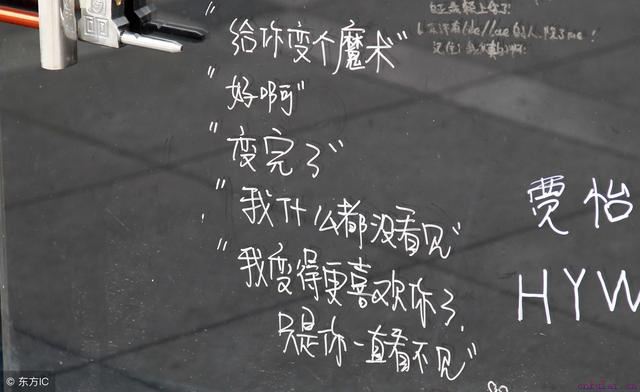 "给你变个魔术"
"好啊"
"变完了"
"我什么都没看见"
"我变得更喜欢你了,
只是你一直看不见"
贾怡
HYW
© 东方IC